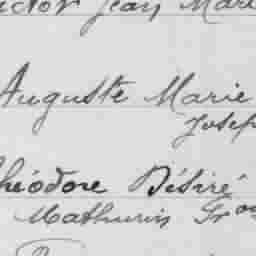 ictor Jean Mari
Auguste Marie
Josep
héodore Désiré
Mathurin Fro